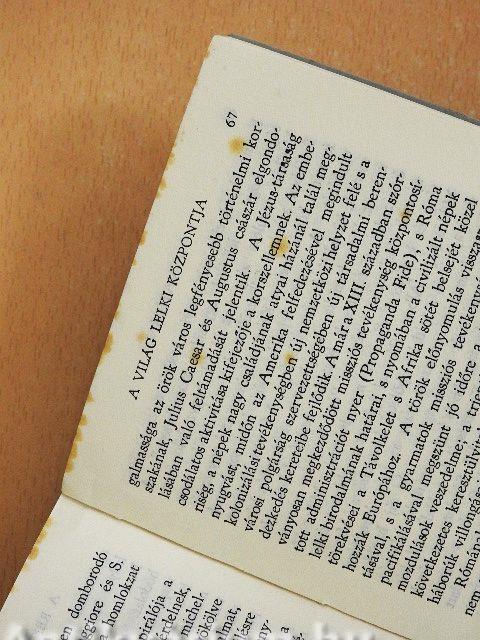 A VILÁG LELKI KÖZPONTJA 67
galmassága az örök város legfényesebb történelmi kor-
szakának, Július Caesar és Augustus császár elgondo-
lásában való feltámadását jelentik. A Jézus-társaság
csodálatos aktivitása kifejezője a korszellemnek. Az embe-
riség, a népek nagy családjának atyai házánál talál meg-
nyugvást, midőn az Amerika felfedezésével megindult
kolonizálási tevékenységben új nemzetközi helyzet felé s a
városi polgárság szervezettségében új társadalmi beren-
dezkedés kereteibe fejlődik. A már a XIII. században szór-
ványosan megkezdődött missziós tevékenység központosí-
tott adminisztrációt nyer (Propaganda Fide), s Róma
lelki birodalmának határai, s nyomában a civilizált népek
törekvései a Távolkelet s Afrika sötét belsejét közel
hozzák Európához. A török előnyomulás visszaszorí-
tásával, s a gyarmatok missziós tevékenység
pacifikálásával megszűnt jó időre a
mozdulások veszedelme; a
következetes keresztülvitele
háborúk villongásai
Rómának
nem
en domborodó
ggiore és S.
a homlokzat
írálója a
érdelnek,
michel-
kölve
mat,
yesre
ény-
s a